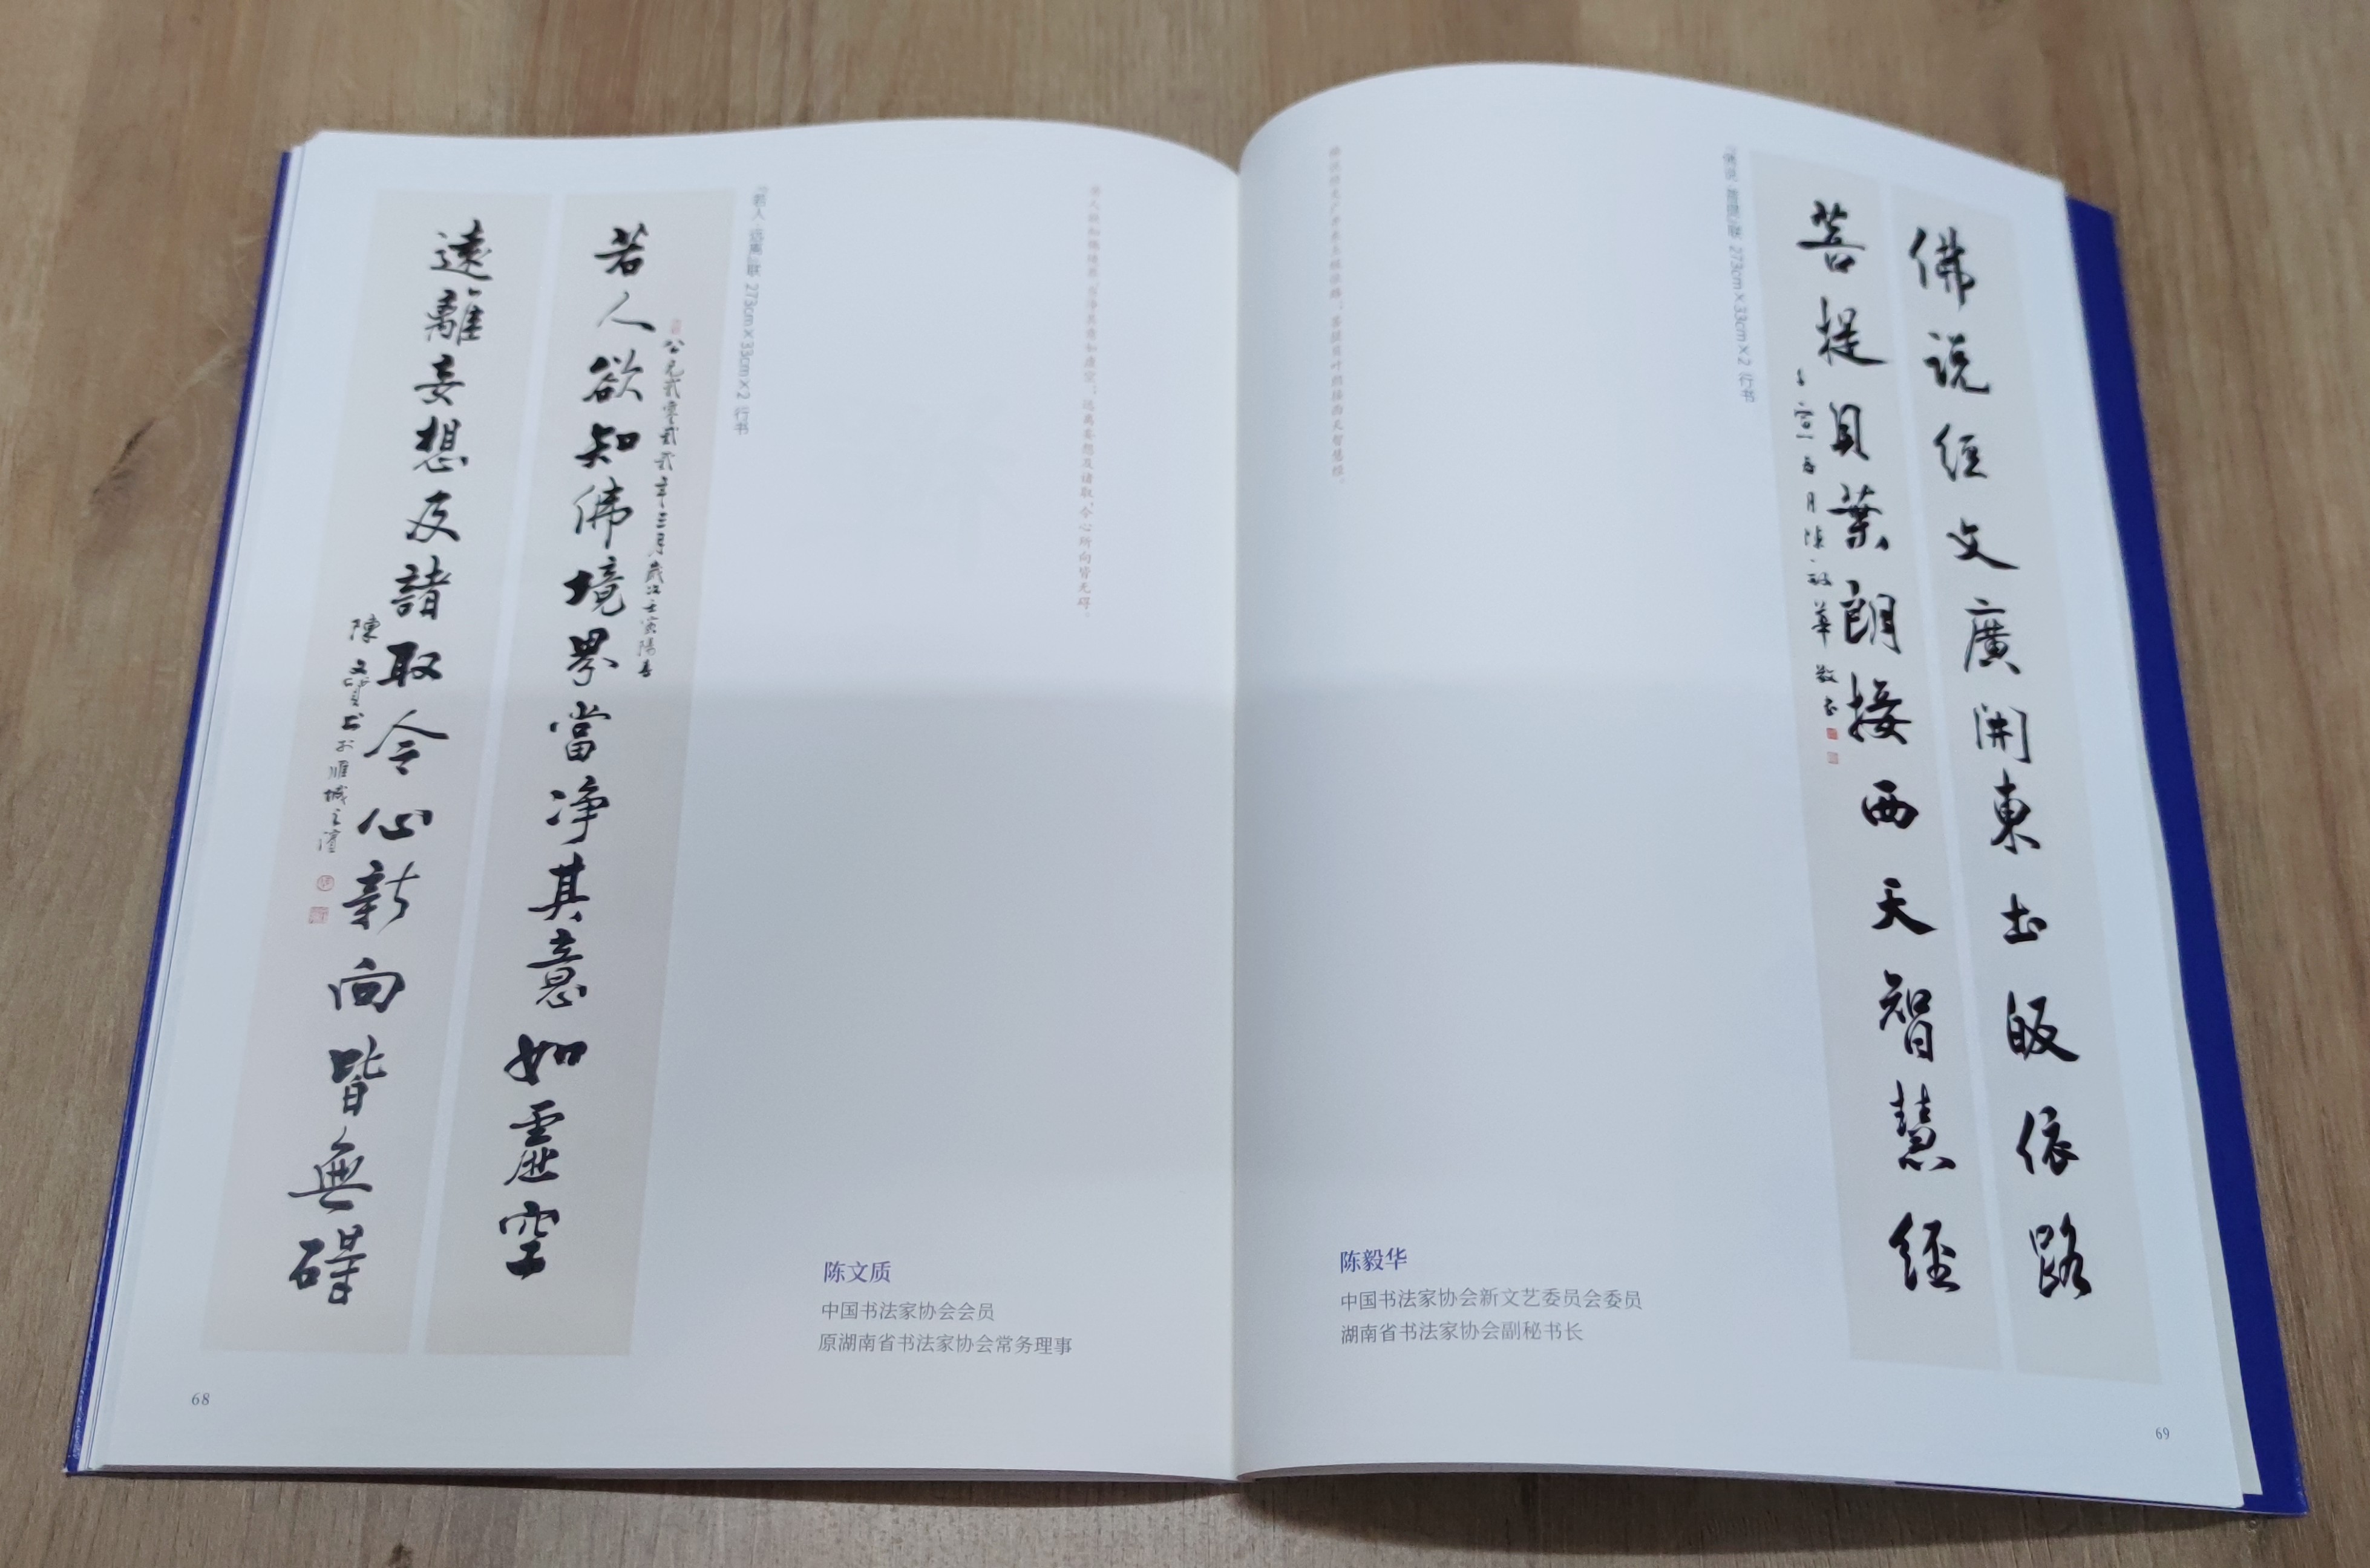 若人欲知佛境界,当净其意如虚空;远离妄想及诸取,令心所向皆无碍。
『若人·远离』联 273cm×33cm×2 行书
公元貳零貳貳年三月歲次壬寅陽春
若人欲知佛境界當净其意如虛空
遠離妄想及諸取令心所向皆無碍
陳文質书於雁城之濱
陈文质
中国书法家协会会员
原湖南省书法家协会常务理事
68
佛説经文廣開東土皈依路
菩提貝葉朗接西天智慧經
壬寅五月陳毅華敬书
『佛说·菩提』联 273cm×33cm×2 行书
佛说经文广开东土皈依路;菩提贝叶朗接西天智慧经。
陈毅华
中国书法家协会新文艺委员会委员
湖南省书法家协会副秘书长
69